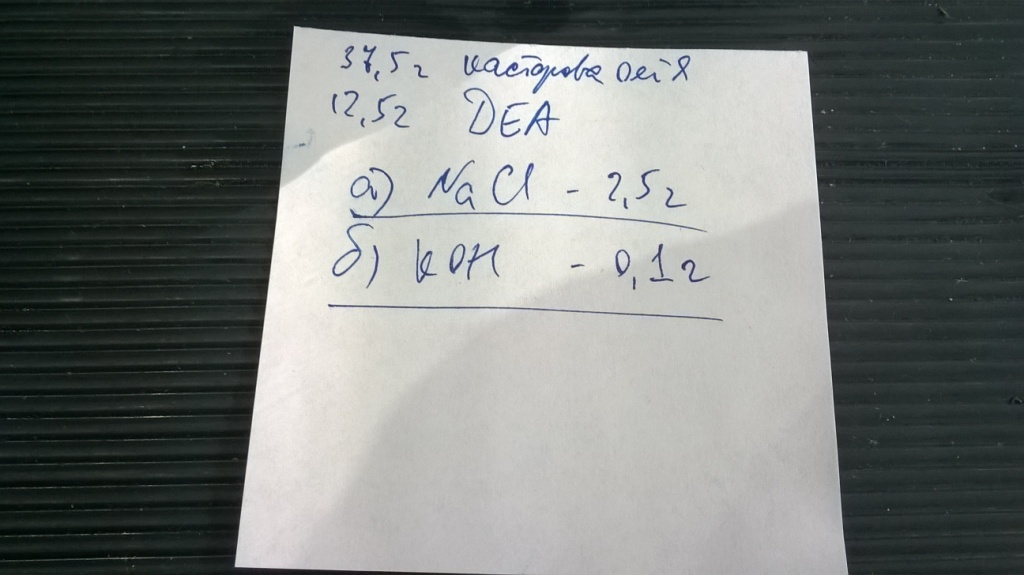 37,5г касторова олія
12,5г DEA
а) NaCl - 2,5г
б) KOH - 0,1г